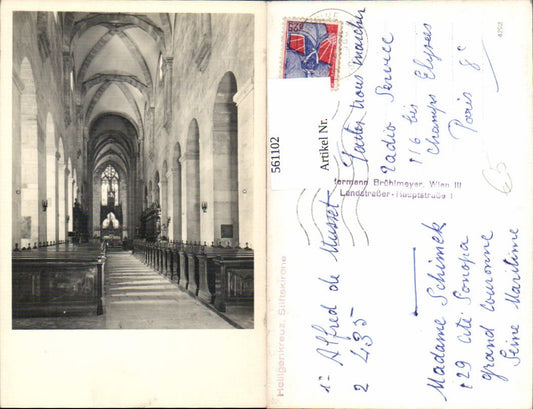 Heiligenkreuz, Stiftskirche
4702
561102
Artikel Nr.
Faites nous marcher
Radio Service
116 bis
Champs Elysées
Paris 8e
Hermann Brühlmeyer, Wien III
Landstraßer-Hauptstraße 1
65
1= Alfred de Musset
2 435
Madame Schimek
129 Cité Sonopa
grand couronne
Seine Maritime